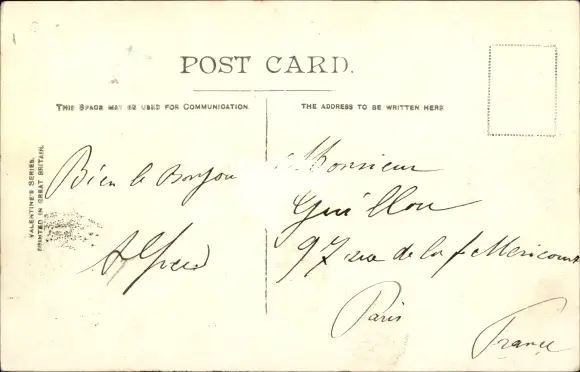 POST CARD.
THIS SPACE MAY BE USED FOR COMMUNICATION.
THE ADDRESS TO BE WRITTEN HERE
VALENTINE'S SERIES.
PRINTED IN GREAT BRITAIN.
Bien le Bonjou
Alfred
Monsieur
Guillou
97 rue de la f Mericourt
Paris
France